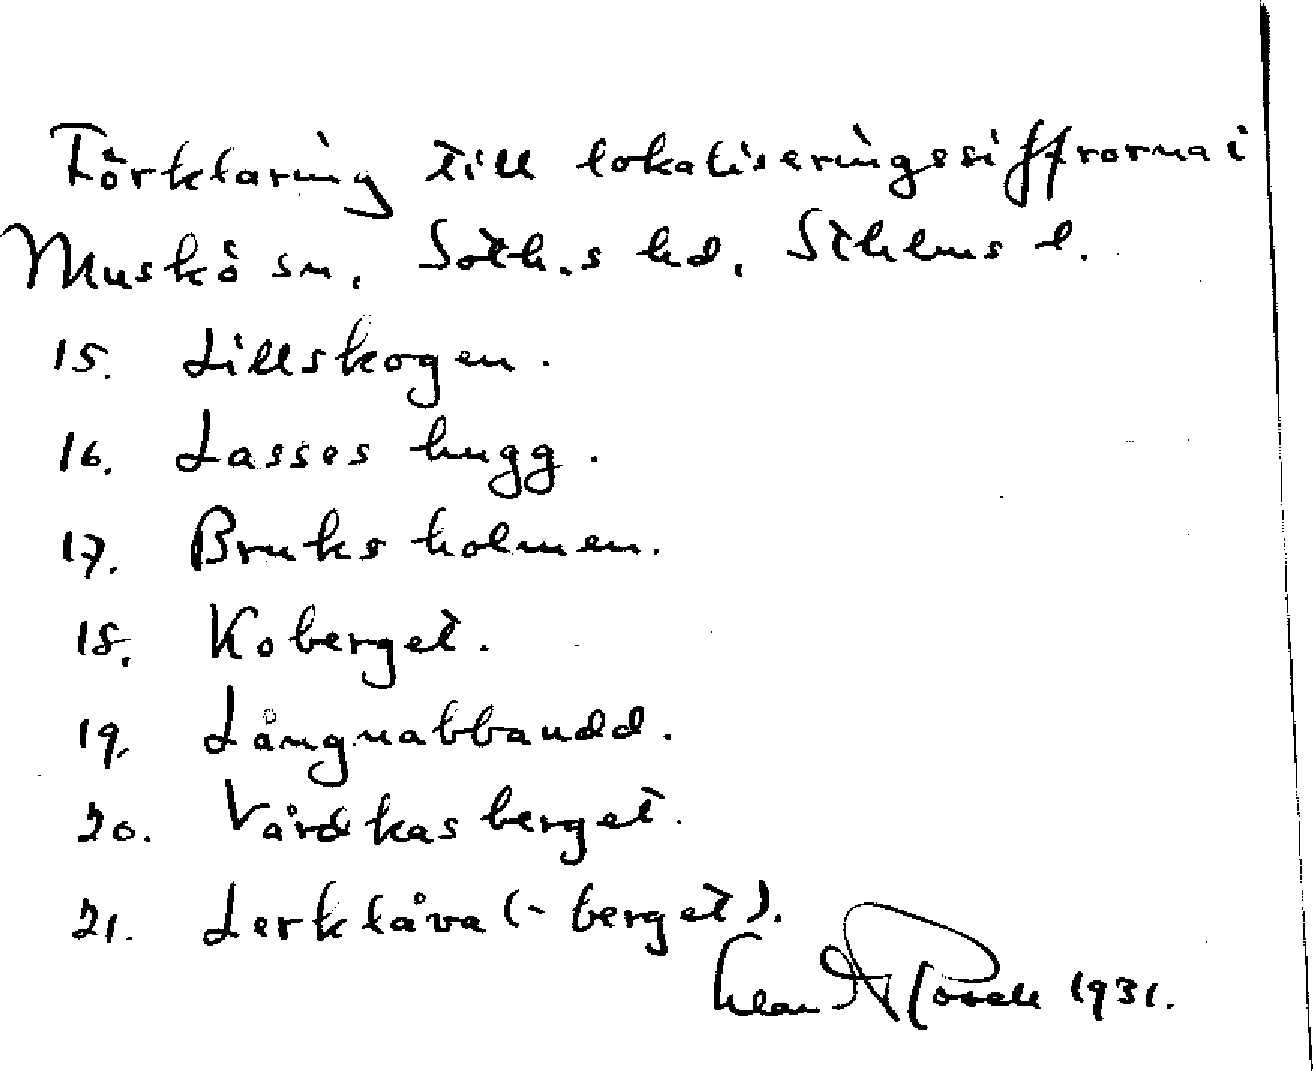 Förklaring till lokaliseringssiffrorna i
Muskö sn, Soth.s hd, Sthlms l.
15. Lillskogen.
16. Lasses hugg.
17. Bruksholmen.
18. Koberget.
19. Långnabbaudd.
20. Vårdkasberget.
21. Lerklåva (-berget).
1931.